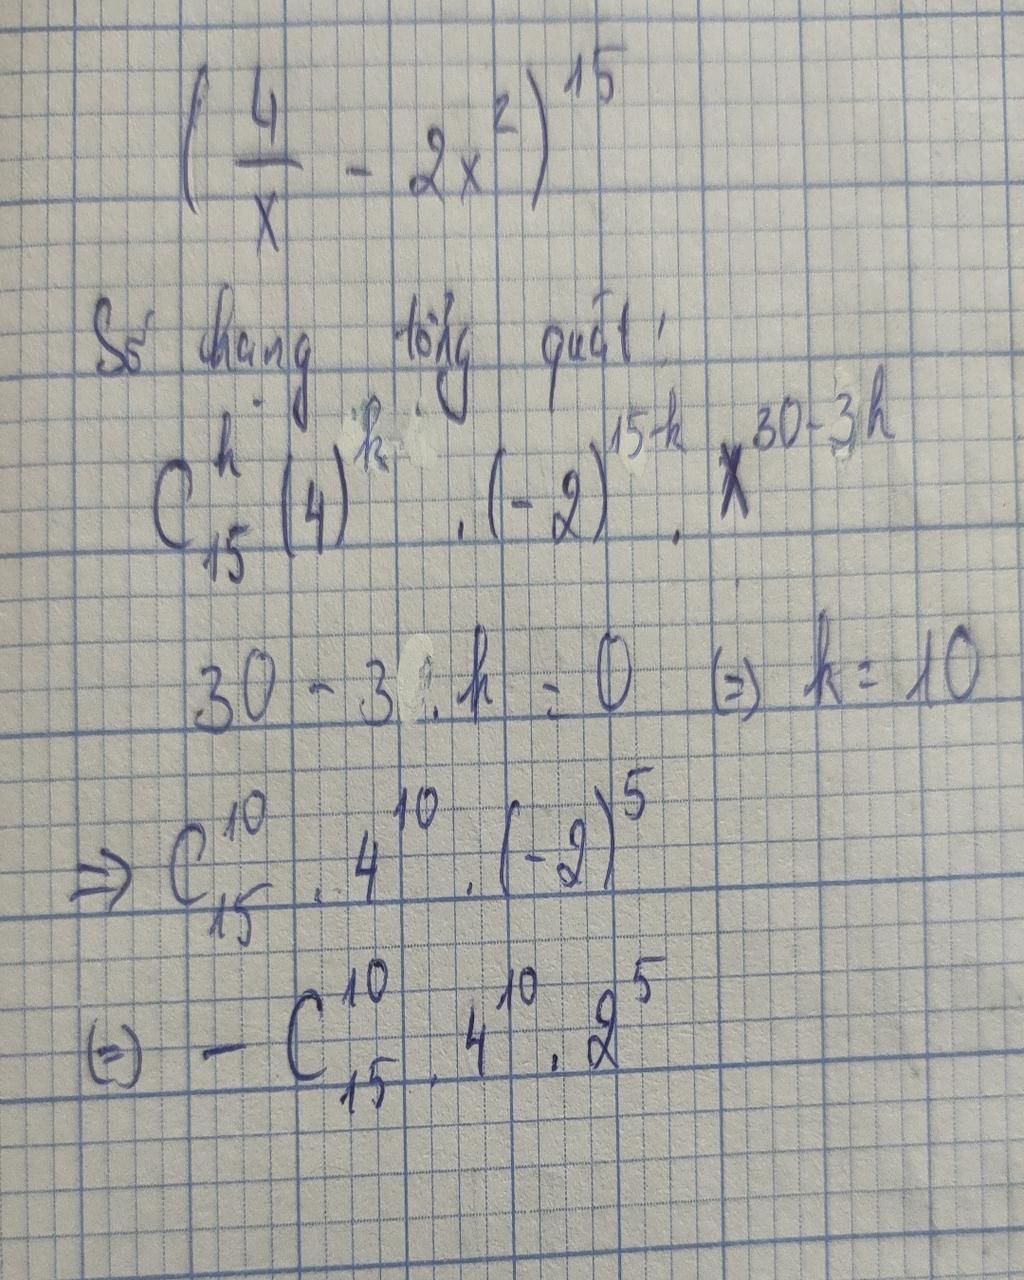 (4/x - 2x²)¹⁵
Số hạng tổng quát:
C₁₅ᵏ (4)ᵏ . (-2)¹⁵⁻ᵏ . x³⁰⁻³ᵏ
30 - 3.k = 0 (=) k = 10
⇒ C₁₅¹⁰ . 4¹⁰ . (-2)⁵
(=) - C₁₅¹⁰ . 4¹⁰ . 2⁵